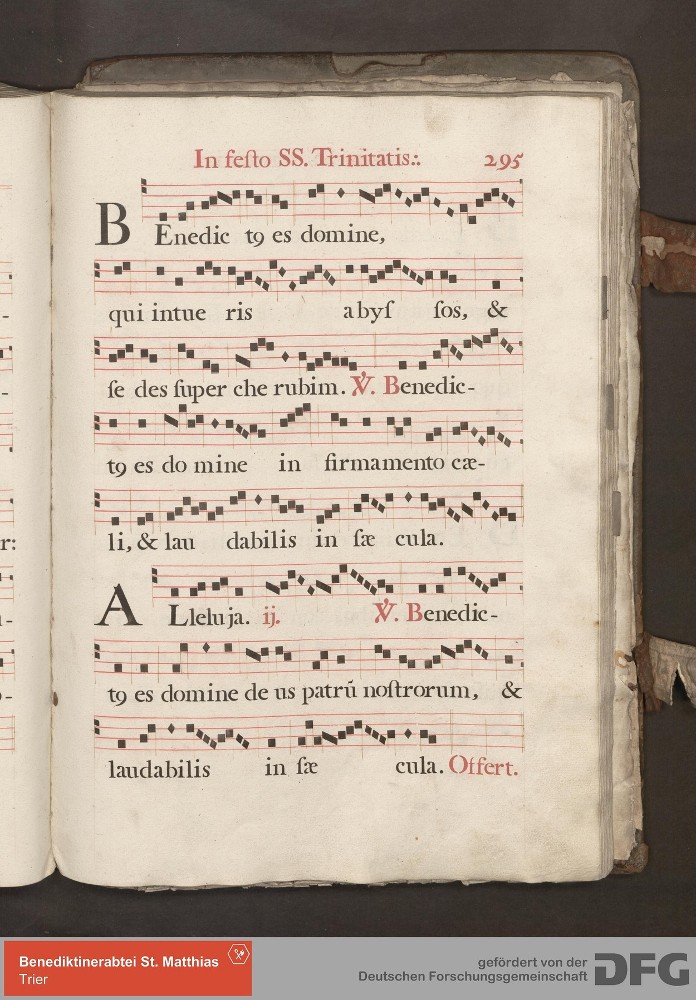 In festo SS. Trinitatis:. 295
BEnedic tꝰ es domine,
qui intue ris abys sos, &
se des super che rubim. ℣. Benedic-
tꝰ es do mine in firmamento cæ-
li, & lau dabilis in sæ cula.
ALleluja. ij. ℣. Benedic-
tꝰ es domine de us patrū nostrorum, &
laudabilis in sæ cula. Offert.
r:
Benediktinerabtei St. Matthias
Trier
gefördert von der
Deutschen Forschungsgemeinschaft
DFG